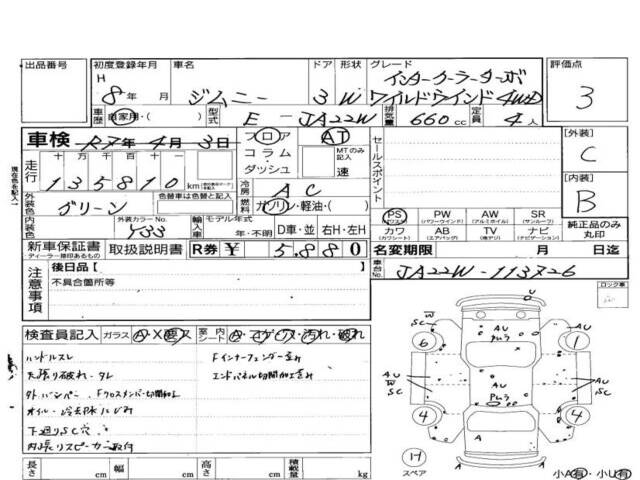 出品番号
初度登録年月 車名 ドア 形状 グレード 評価点
H 8年 月 ジムニー 3 W インタークーラーターボ ワイルドウインド4WD 3
車歴 自家用・( ) 型式 E-JA22W 排気量 660cc 定員 4人
車検 R7年4月3日 フロア AT
コラム・ MTのみ記入
ダッシュ 速
走行 十 万 千 百 十 一
135810 km
現在色を記入
外装色 グリーン 色替車は色替と記入
冷房 AC
燃料 ガソリン・軽油・( )
内装色 外装カラーNo. Y33
輸入車 モデル年式 年・不明 D車・並 右H・左H
セールスポイント
[外装] C
[内装] B
PS (パワステ) PW (パワーウインド) AW (アルミホイル) SR (サンルーフ)
カワ (カワシート) AB (エアバッグ) TV (純テレビ) ナビ (ナビゲーション)
純正品のみ丸印
新車保証書 取扱説明書 R券 ¥ 5,880
ディーラー捺印あるもの
名変期限 月 日迄
車台No. JA22W-113726
注意事項
後日品[ ]
不具合箇所等
ロック車
検査員記入 ガラス A・X要ス 室内 シート A・コゲ・ス・汚れ・破れ
ハンドルスレ
天張り破れ・タレ
外バンパー、Fクロスメンバー切開加工
オイル・冷却水にじみ
下廻りSC穴
内張りスピーカー取付
Fインナーフェンダー歪み
エンドパネル切開加工歪み
W
SC
AU
AU
U
6
1
AU
W
SC
U
AU
SC
4
4
A
H
スペア
小A有・小U有
長さ cm 幅 cm 高さ cm 積載量 kg